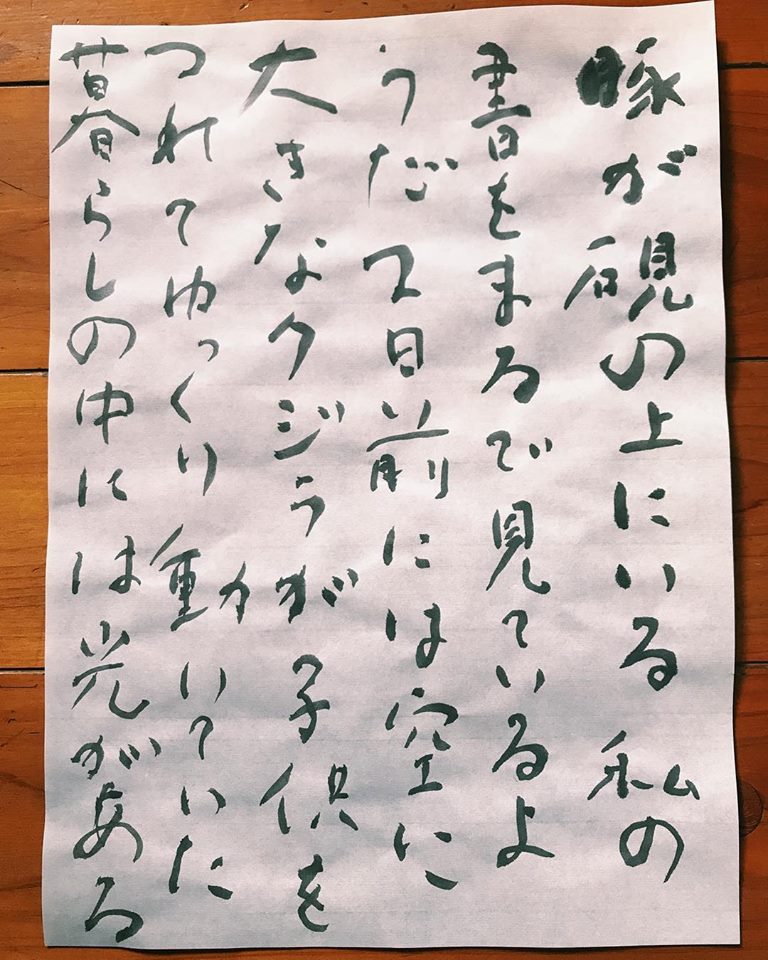 豚が硯の上にいる 私の
書をまるで見ているよ
うだ 2日前には空に
大きなクジラが子供を
つれてゆっくり動いていた
暮らしの中には光がある